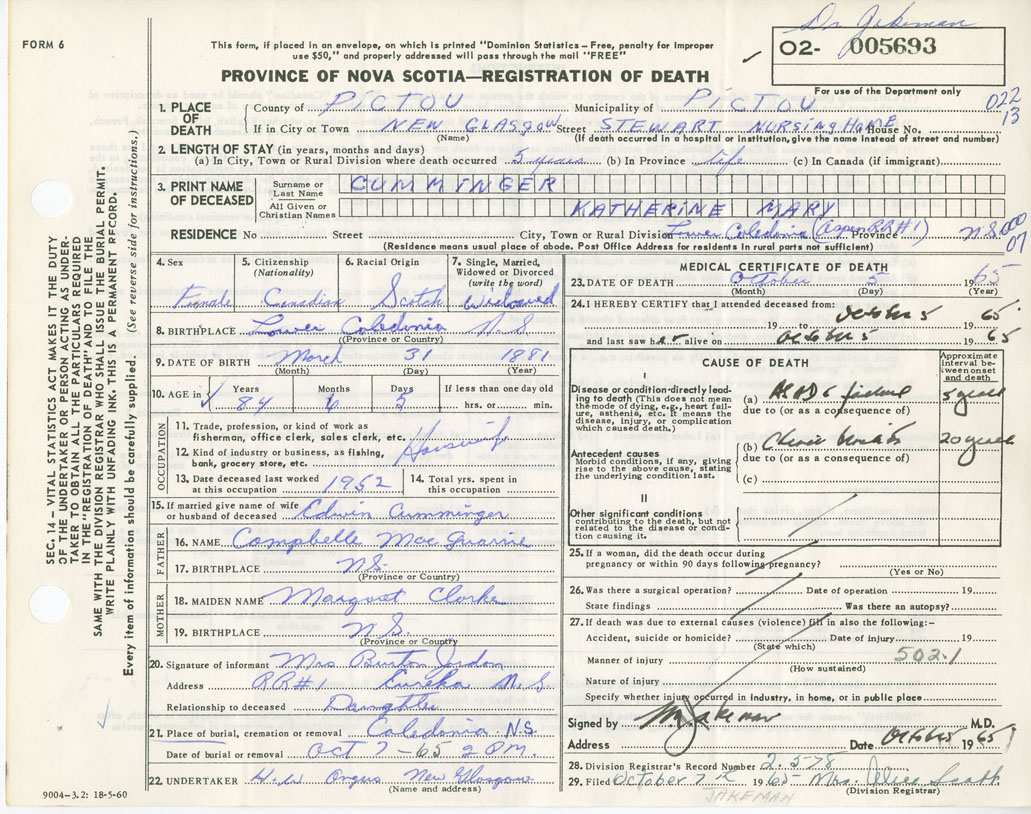 Dr. Jakeman
FORM 6
This form, if placed in an envelope, on which is printed "Dominion Statistics – Free, penalty for improper
use $50," and properly addressed will pass through the mail "FREE"
02- 005693
For use of the Department only
PROVINCE OF NOVA SCOTIA—REGISTRATION OF DEATH
022
13
1. PLACE OF DEATH County of PICTOU Municipality of PICTOU
If in City or Town NEW GLASGOW Street STEWART NURSING HOME House No.
(Name) (If death occurred in a hospital or institution, give the name instead of street and number)
2. LENGTH OF STAY (in years, months and days)
(a) In City, Town or Rural Division where death occurred 5 years (b) In Province life (c) In Canada (if immigrant)
3. PRINT NAME OF DECEASED Surname or Last Name CUMMINGER
All Given or Christian Names KATHERINE MARY
RESIDENCE No Street City, Town or Rural Division Lower Caledonia (Aspen RR#1) Province N S
000
07
(Residence means usual place of abode. Post Office Address for residents in rural parts not sufficient)
SEC. 14 – VITAL STATISTICS ACT MAKES IT THE DUTY
OF THE UNDERTAKER OR PERSON ACTING AS UNDER-
TAKER TO OBTAIN ALL THE PARTICULARS REQUIRED
IN THE "REGISTRATION OF DEATH" AND TO FILE THE
SAME WITH THE DIVISION REGISTRAR WHO SHALL ISSUE THE BURIAL PERMIT.
WRITE PLAINLY WITH UNFADING INK. THIS IS A PERMANENT RECORD.
Every item of information should be carefully supplied. (See reverse side for instructions.)
4. Sex 5. Citizenship (Nationality) 6. Racial Origin 7. Single, Married, Widowed or Divorced (write the word)
Female Canadian Scotch Widowed
8. BIRTHPLACE Lower Caledonia N S
(Province or Country)
9. DATE OF BIRTH March 31 1881
(Month) (Day) (Year)
10. AGE in Years Months Days If less than one day old
84 6 5 hrs. or min.
OCCUPATION
11. Trade, profession, or kind of work as
fisherman, office clerk, sales clerk, etc. Housewife
12. Kind of industry or business, as fishing,
bank, grocery store, etc.
13. Date deceased last worked at this occupation 1952 14. Total yrs. spent in this occupation
15. If married give name of wife or husband of deceased Edwin Cumminger
FATHER
16. NAME Campbelle MacQuarrie
17. BIRTHPLACE N.S.
(Province or Country)
MOTHER
18. MAIDEN NAME Margaret Clarke
19. BIRTHPLACE N.S.
(Province or Country)
20. Signature of informant Mrs Burton Jordon
Address RR#1 Eureka N.S.
Relationship to deceased Daughter
21. Place of burial, cremation or removal Caledonia N.S.
Date of burial or removal Oct 7 – 65 2 PM.
22. UNDERTAKER H.W. Angus New Glasgow
(Name and address)
9004–3.2: 18-5-60
MEDICAL CERTIFICATE OF DEATH
23. DATE OF DEATH October 5 1965
(Month) (Day) (Year)
24. I HEREBY CERTIFY that I attended deceased from:
19 to October 5 1965
and last saw her alive on October 5 1965
CAUSE OF DEATH
Approximate interval between onset and death
I
Disease or condition directly lead-
ing to death (This does not mean
the mode of dying, e.g., heart fail-
ure, asthenia, etc. It means the
disease, injury, or complication
which caused death.)
(a) failure 5 years
due to (or as a consequence of)
Antecedent causes
Morbid conditions, if any, giving
rise to the above cause, stating
the underlying condition last.
(b) 20 years
due to (or as a consequence of)
(c)
II
Other significant conditions
contributing to the death, but not
related to the disease or condi-
tion causing it.
25. If a woman, did the death occur during
pregnancy or within 90 days following pregnancy?
(Yes or No)
26. Was there a surgical operation? Date of operation 19
State findings Was there an autopsy?
27. If death was due to external causes (violence) fill in also the following:–
Accident, suicide or homicide? Date of injury 19
(State which)
Manner of injury 502.1
(How sustained)
Nature of injury
Specify whether injury occurred in industry, in home, or in public place
Signed by Jakeman M.D.
Address Date October 5 1965
28. Division Registrar's Record Number 2.5-78
29. Filed October 7th 1965 Mrs. Alice Scott
(Division Registrar)
JAKEMAN